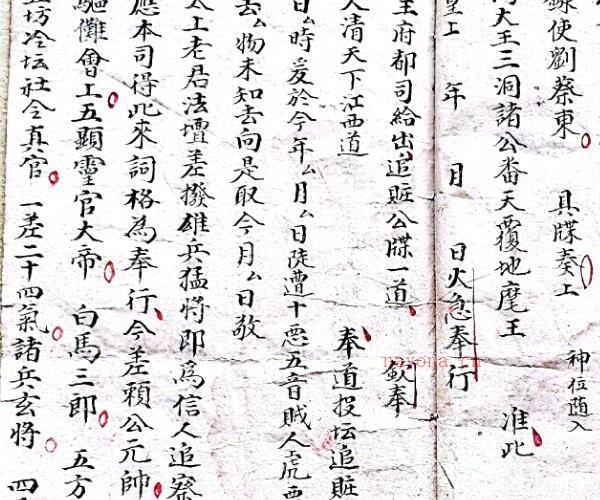 錄使劉蔡東 具牒奏上
神位随入
大王三洞諸公番天覆地麾王 准此
皇上 年 月 日火急奉行
王府都司給出追賍公牒一道 欽奉
大清天下江西道 奉道投坛追賍
日厶時爰於今年厶月厶日陡遭十悪五音賊人
去厶物未知去向是取今月厶日敬
太上老君法壇差撥雄兵猛將即爲信人追
應本司得此來詞格為奉行今差賴公元帥
驅儺會上五顯靈官大帝 白馬三郎 五方
坊冷坛社令真官 一差二十四氣諸兵玄將 四
nayona.cn